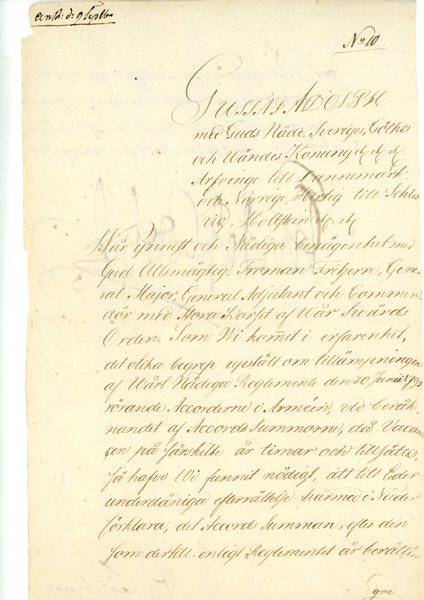 N:o 10
GUSTAF ADOLPH
med Guds Nåde, Sveriges, Göthes
och Wändes Konung &c &c &c
Arfvinge till Dannemark
och Norrige, Hertig till Schles
vig Hollstein &c &c
Vår ynnest och Nådiga benägenhet med
Gud Allsmägtig, Troman Friherre, Gene-
ral Major, General Adjutant och Commen-
dör med Stora Korset af Vår Svärds
Orden. Som Wi kom̄it i erfarenhet,
det olika begrep upstått om tillämpningen
af Vårt Nådiga Reglemente den 20 Junii
rörande Accorderne i Arméen, vid beräk-
nandet af Accords Summorne, då Vacan-
cen på särskilte år timar och tillsättes,
så hafve Wi funnit nödigt, att till Eder
underdåniga efterrättelse härmed i Nåder
förklara, det Accords Summan, efter den
som dertill enligt Reglementet är berätti-